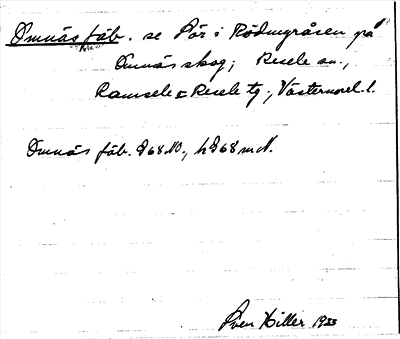 Omnäs fäb. se Pör i Rödmyråsen på
Omnäs skog; Resele sn.,
Ramsele o Resele tg., Västernorrl. l.
Omnäs fäb. 868 NO, h 868 m N.
Sven Hiller 1933